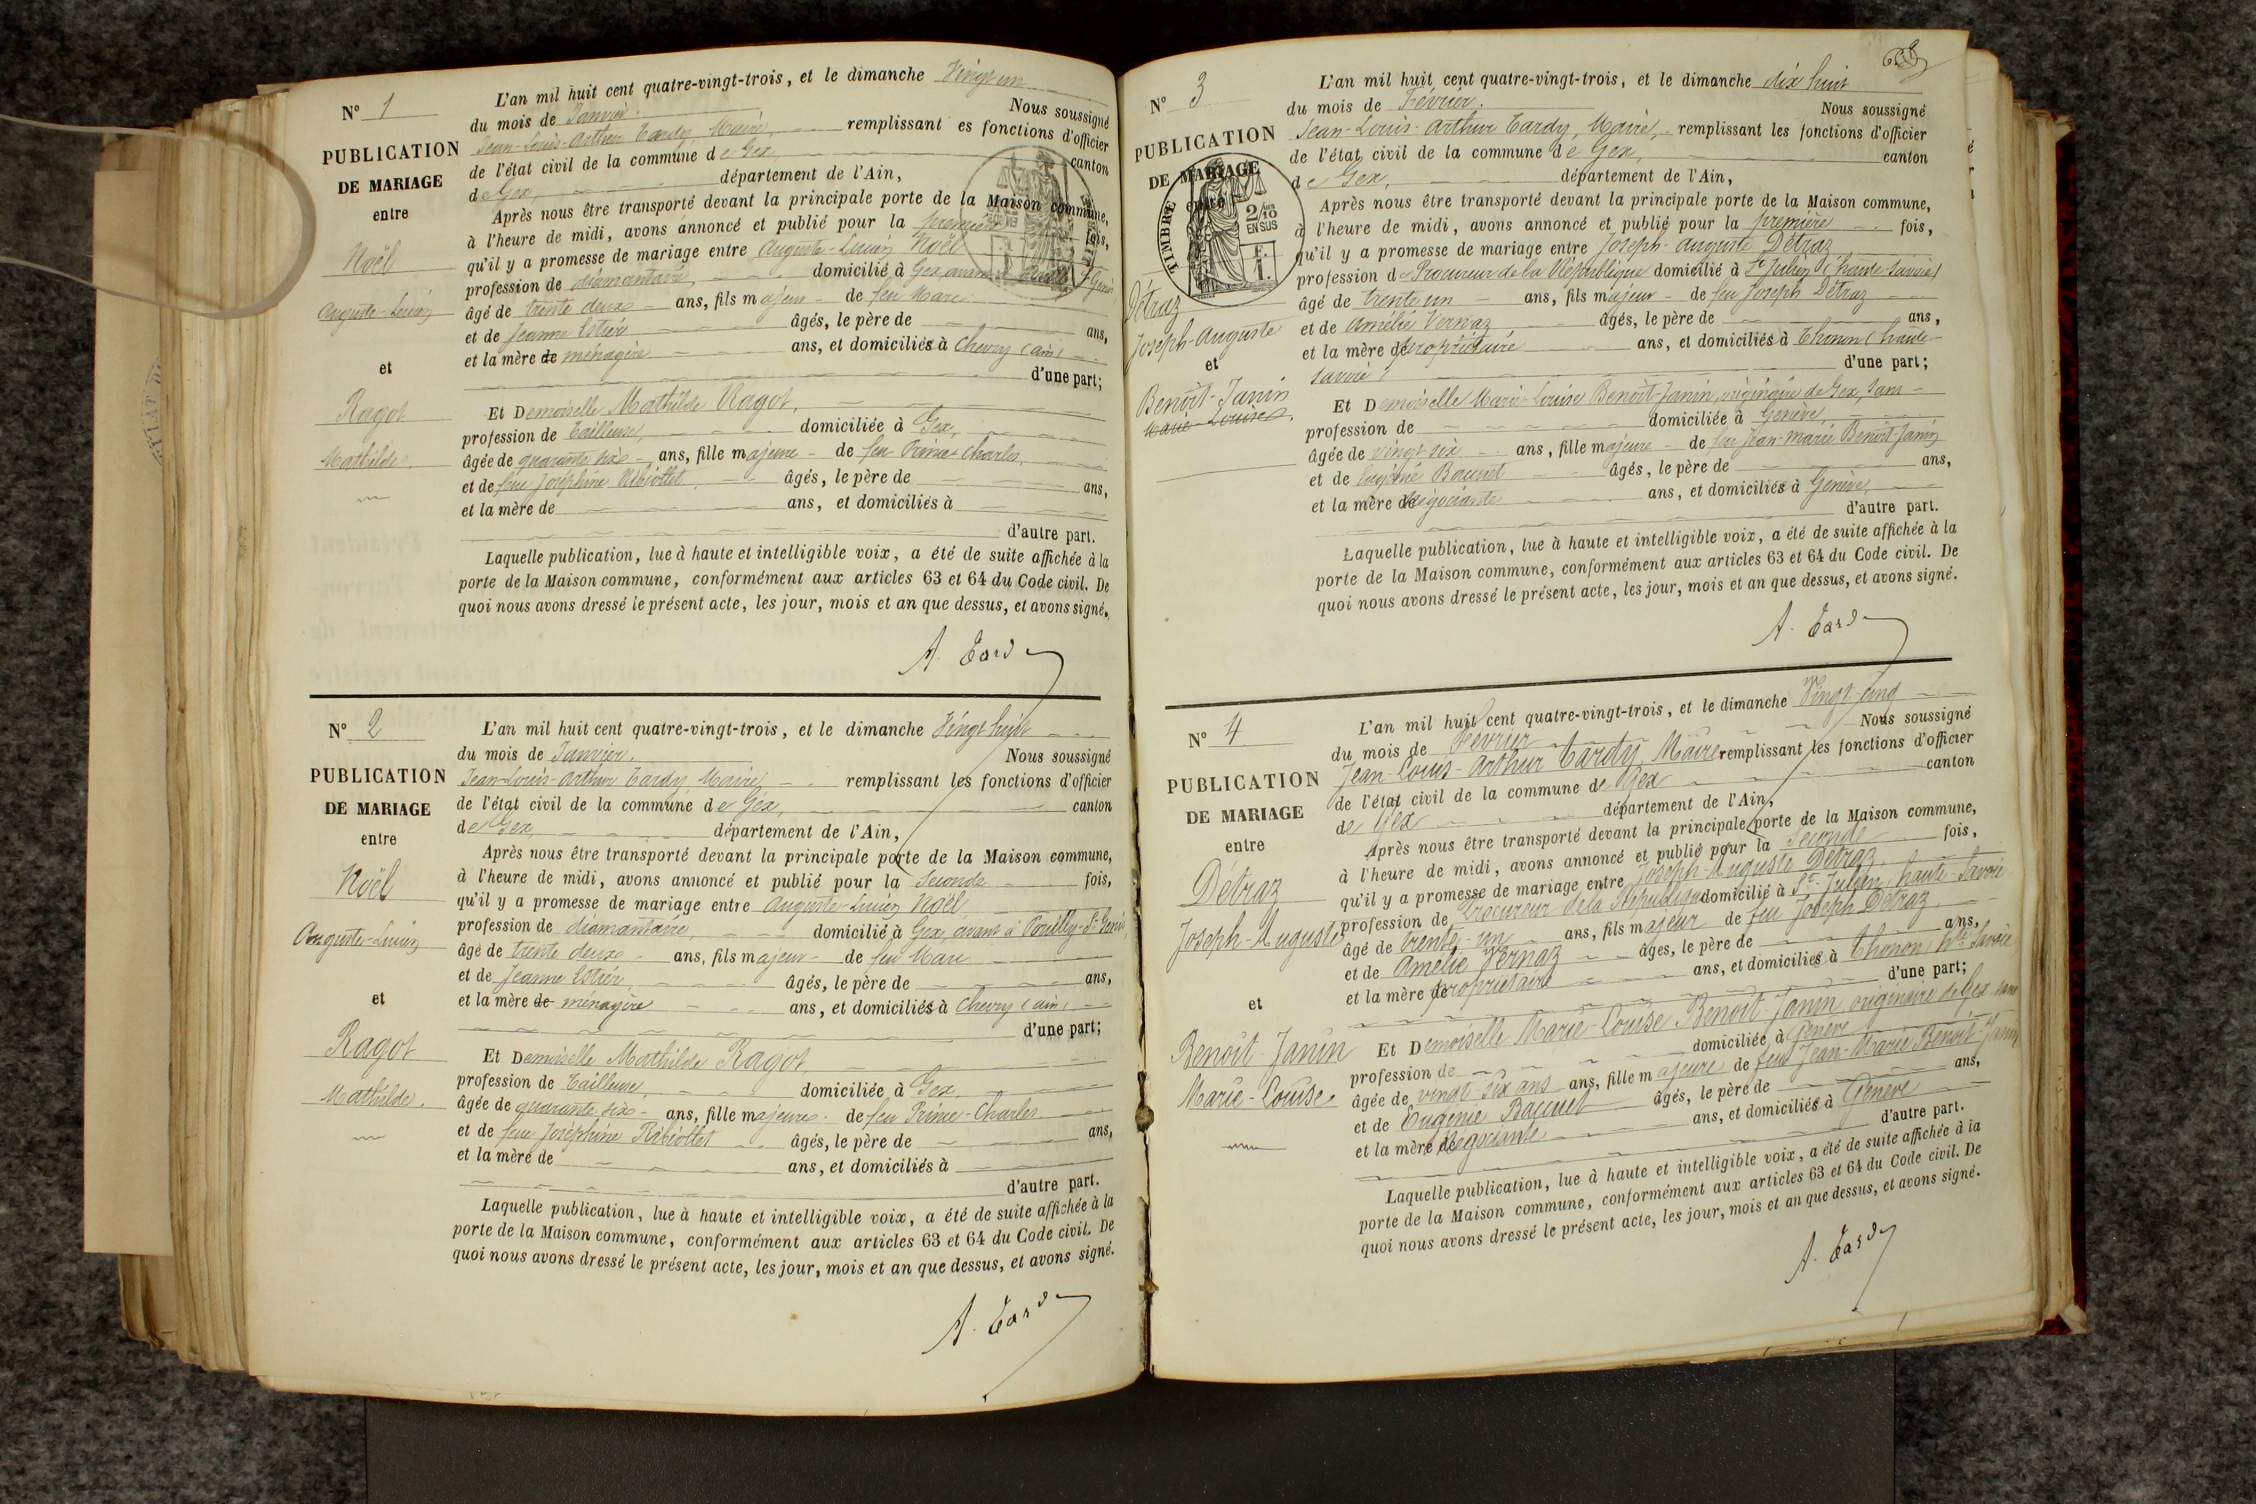 N° 1
PUBLICATION
DE MARIAGE
entre
Noël
Auguste-Lucien
et
Ragot
Mathilde.
L'an mil huit cent quatre-vingt-trois, et le dimanche Vingt un
du mois de Janvier. Nous soussigné
Jean-Louis-Arthur Tardy, Maire, remplissant es fonctions d'officier
de l'état civil de la commune de Gex, canton
de Gex, département de l'Ain,
Après nous être transporté devant la principale porte de la Maison commune,
à l'heure de midi, avons annoncé et publié pour la première fois,
qu'il y a promesse de mariage entre Auguste-Lucien Noël
profession de diamantaire, domicilié à Gex, avant à Genis
âgé de trente deux ans, fils majeur de feu Marc
et de Jeanne Estier âgés, le père de ans,
et la mère de ménagère ans, et domiciliés à Chevry (ain)
d'une part;
Et Demoiselle Mathilde Ragot,
profession de Tailleuse, domiciliée à Gex,
âgée de quarante six ans, fille majeure de feu Prime Charles,
et de feue Joséphine Ribiollet âgés, le père de ans,
et la mère de ans, et domiciliés à
d'autre part.
Laquelle publication, lue à haute et intelligible voix, a été de suite affichée à la
porte de la Maison commune, conformément aux articles 63 et 64 du Code civil. De
quoi nous avons dressé le présent acte, les jour, mois et an que dessus, et avons signé.
A. Tardy
N° 2
PUBLICATION
DE MARIAGE
entre
Noël
Auguste-Lucien
et
Ragot
Mathilde.
L'an mil huit cent quatre-vingt-trois, et le dimanche Vingt huit
du mois de Janvier. Nous soussigné
Jean-Louis-Arthur Tardy Maire, remplissant les fonctions d'officier
de l'état civil de la commune de Gex, canton
de Gex, département de l'Ain,
Après nous être transporté devant la principale porte de la Maison commune,
à l'heure de midi, avons annoncé et publié pour la seconde fois,
qu'il y a promesse de mariage entre Auguste-Lucien Noël
profession de diamantaire, domicilié à Gex, avant à Pouilly-St Genis,
âgé de trente deux ans, fils majeur de feu Marc
et de Jeanne Estier, âgés, le père de ans,
et la mère de ménagère ans, et domiciliés à Chevry (ain)
d'une part;
Et Demoiselle Mathilde Ragot,
profession de Tailleuse, domiciliée à Gex,
âgée de quarante six ans, fille majeure de feu Prime-Charles
et de feue Joséphine Ribiollet âgés, le père de ans,
et la mère de ans, et domiciliés à
d'autre part.
Laquelle publication, lue à haute et intelligible voix, a été de suite affichée à la
porte de la Maison commune, conformément aux articles 63 et 64 du Code civil. De
quoi nous avons dressé le présent acte, les jour, mois et an que dessus, et avons signé.
A. Tardy
N° 3
PUBLICATION
DE MARIAGE
entre
TIMBRE
2/10
EN SUS
Détraz
Joseph-Auguste
et
Benoît-Janin
Marie-Louise.
L'an mil huit cent quatre-vingt-trois, et le dimanche dix huit
du mois de Février. Nous soussigné
Jean-Louis-Arthur Tardy, Maire, remplissant les fonctions d'officier
de l'état civil de la commune de Gex, canton
de Gex, département de l'Ain,
Après nous être transporté devant la principale porte de la Maison commune,
à l'heure de midi, avons annoncé et publié pour la première fois,
qu'il y a promesse de mariage entre Joseph-Auguste Détraz
profession de Procureur de la République domicilié à St Julien (haute-Savoie)
âgé de trente un ans, fils majeur de feu Joseph Détraz
et de Amélie Vernaz âgés, le père de ans,
et la mère de propriétaire ans, et domiciliés à Thonon (haute-
Savoie) d'une part;
Et Demoiselle Marie-Louise Benoît-Janin, originaire de Gex, sans
profession de domiciliée à Genève,
âgée de vingt six ans, fille majeure de feu Jean-Marie Benoît-Janin
et de Eugénie Bacquet âgés, le père de ans,
et la mère de Négociante ans, et domiciliés à Genève,
d'autre part.
Laquelle publication, lue à haute et intelligible voix, a été de suite affichée à la
porte de la Maison commune, conformément aux articles 63 et 64 du Code civil. De
quoi nous avons dressé le présent acte, les jour, mois et an que dessus, et avons signé.
A. Tardy
N° 4
PUBLICATION
DE MARIAGE
entre
Détraz
Joseph-Auguste
et
Benoît-Janin
Marie-Louise
L'an mil huit cent quatre-vingt-trois, et le dimanche Vingt-cinq
du mois de Février Nous soussigné
Jean-Louis-Arthur Tardy Maire remplissant les fonctions d'officier
de l'état civil de la commune de Gex canton
de Gex département de l'Ain,
Après nous être transporté devant la principale porte de la Maison commune,
à l'heure de midi, avons annoncé et publié pour la Seconde fois,
qu'il y a promesse de mariage entre Joseph-Auguste Détraz
profession de Procureur de la République domicilié à St-Julien, haute-Savoie
âgé de trente-un ans, fils majeur de feu Joseph Détraz
et de Amélie Vernaz âgés, le père de ans,
et la mère de propriétaire ans, et domiciliés à Thonon, hte Savoie
d'une part;
Et Demoiselle Marie-Louise Benoît-Janin originaire de Gex sans
profession de domiciliée à Genève
âgée de vingt-six ans ans, fille majeure de feu Jean-Marie Benoît-Janin
et de Eugénie Bacquet âgés, le père de ans,
et la mère de Négociante ans, et domiciliés à Genève
d'autre part.
Laquelle publication, lue à haute et intelligible voix, a été de suite affichée à la
porte de la Maison commune, conformément aux articles 63 et 64 du Code civil. De
quoi nous avons dressé le présent acte, les jour, mois et an que dessus, et avons signé.
A. Tardy